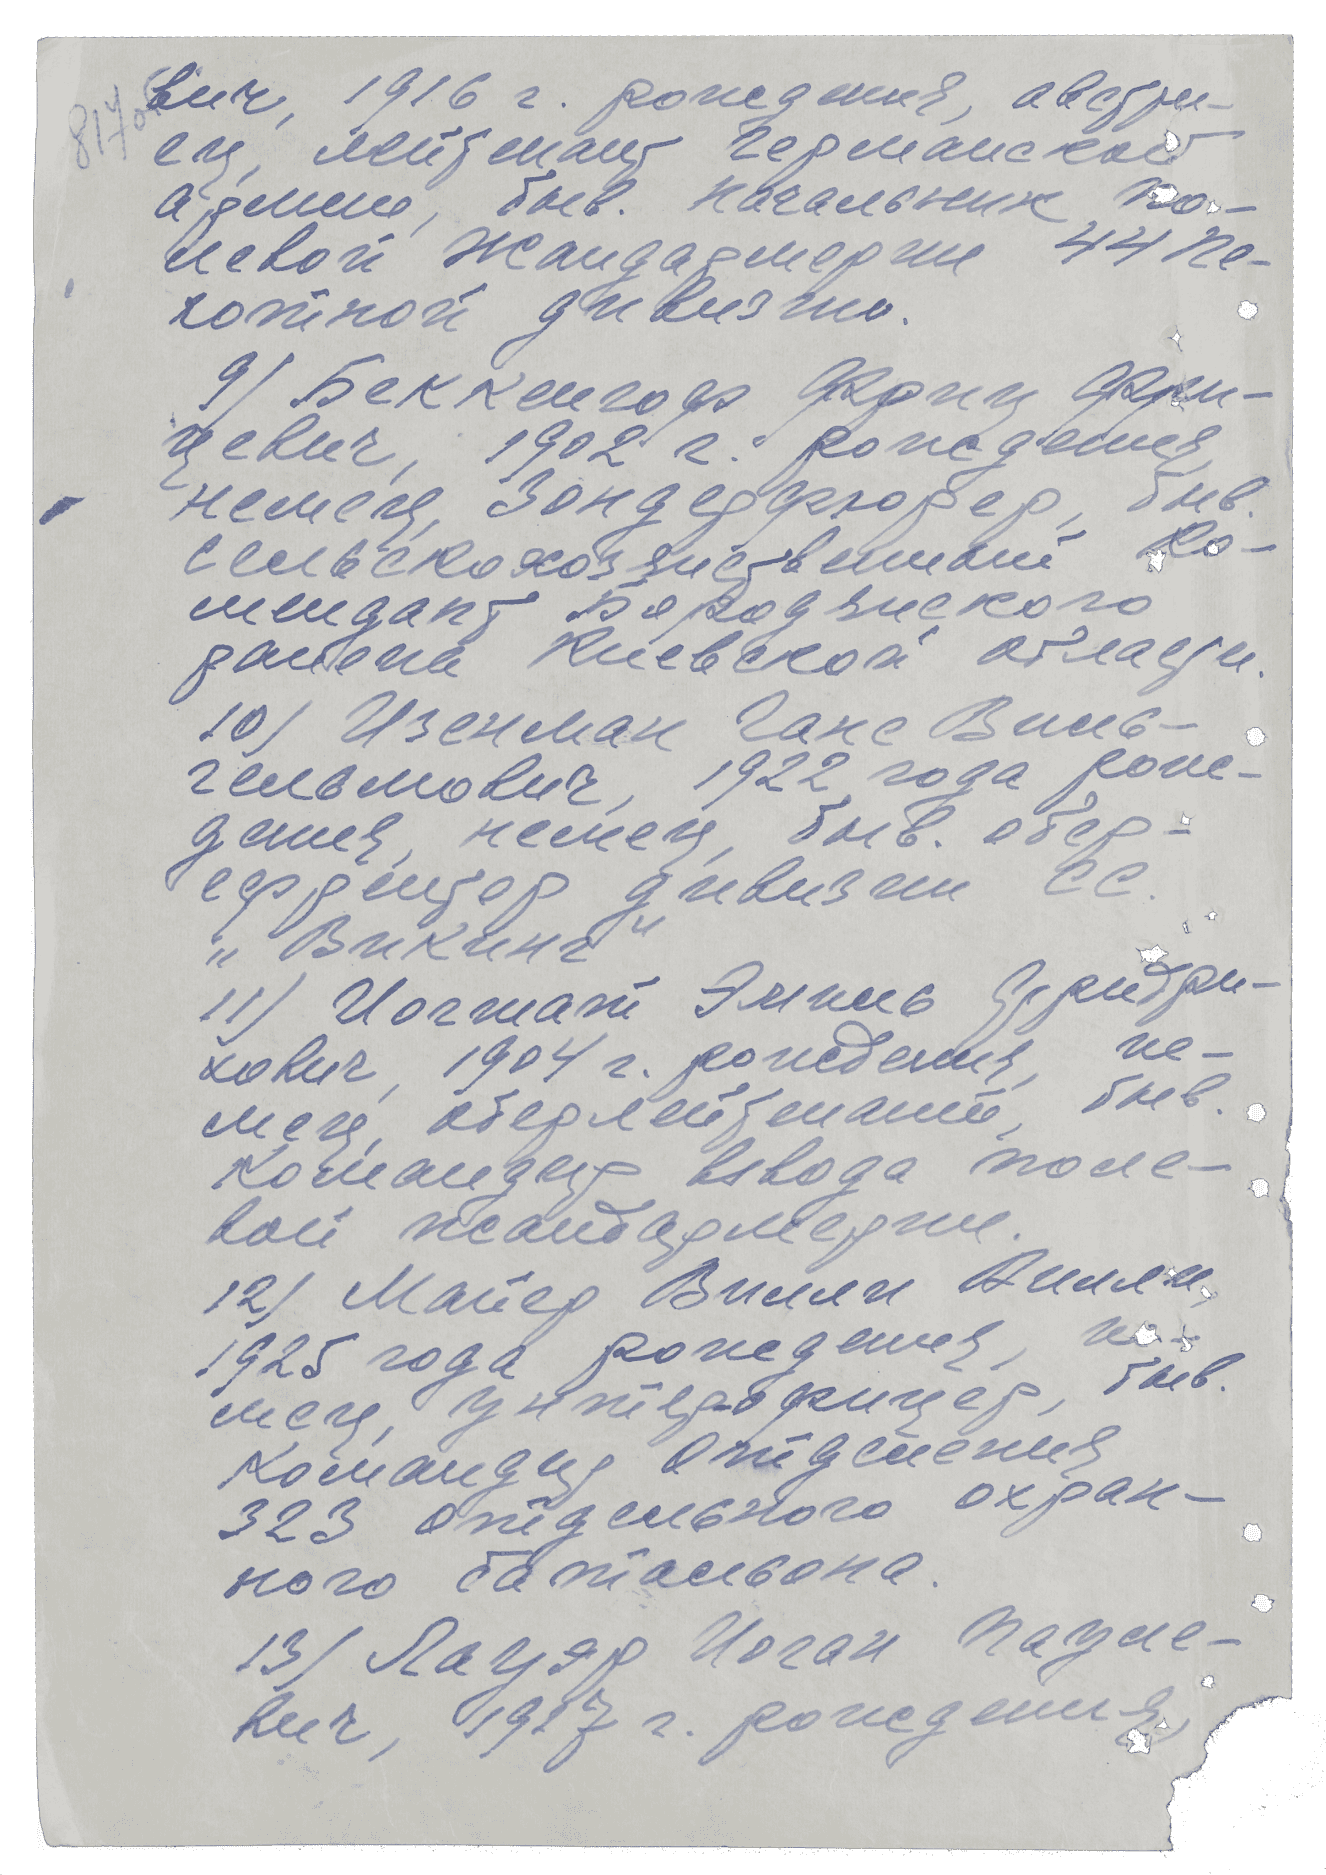 817об
вич, 1916 г. рождения, австри-
ец, лейтенант германской
армии, быв. начальник по-
левой жандармерии 44 пе-
хотной дивизии.
9/ Беккенгоф Фриц Фри-
цевич, 1902 г. рождения,
немец, Зондерфюрер, быв.
сельскохозяйственный ко-
мендант Бородянского
района Киевской области.
10/ Изенман Ганс Виль-
гельмович, 1922 года рож-
дения, немец, быв. обер-
ефрейтор дивизии СС.
„Викинг"
11/ Иогшат Эмиль Фридри-
хович, 1904 г. рождения, не-
мец, оберлейтенант, быв.
командир взвода поле-
вой жандармерии.
12/ Майер Вилли Вилли,
1925 года рождения, не-
мец, унтерофицер, быв.
командир отделения
323 отдельного охран-
ного батальона.
13/ Лауэр Иоган Пауле-
вич, 1917 г. рождения,